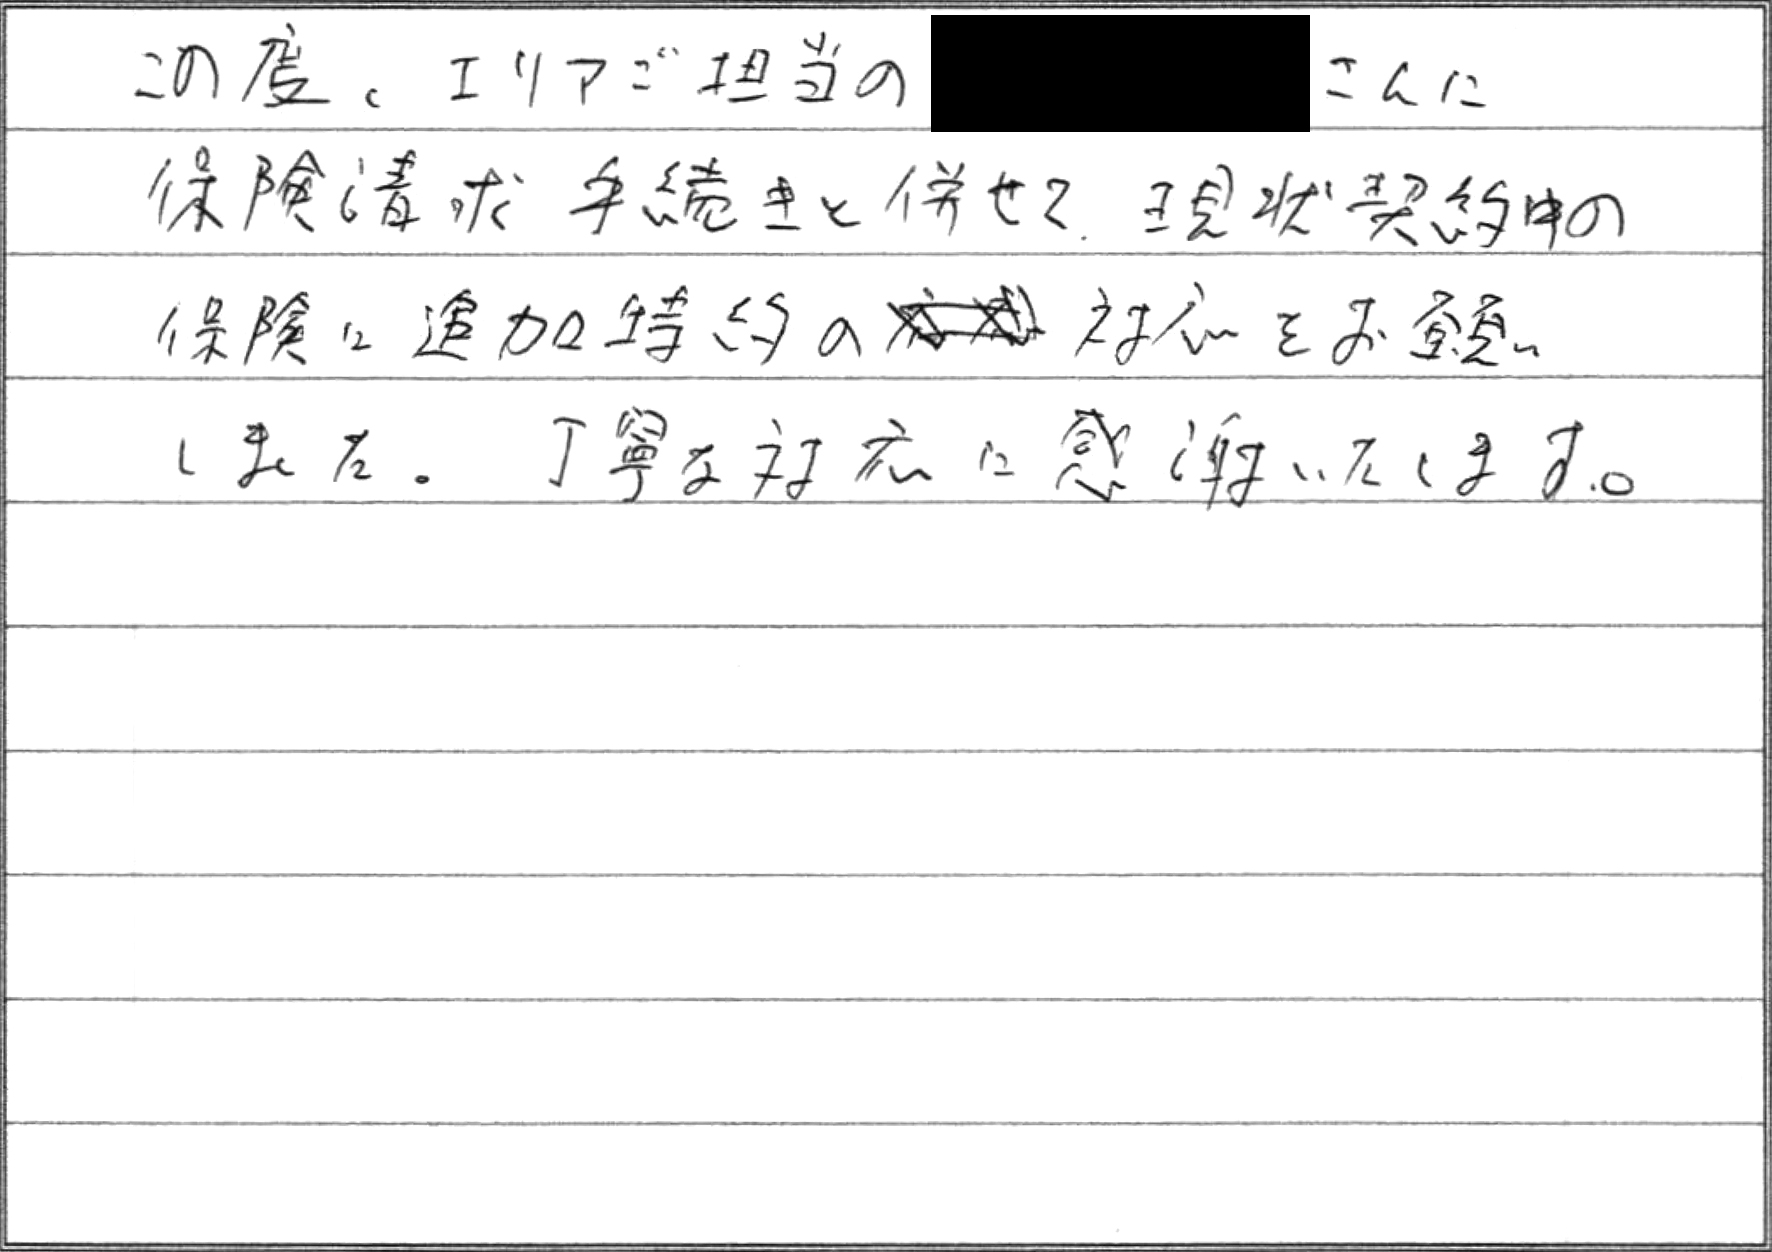 この度、エリアご担当の さんに
保険請求手続きと併せて、現状契約中の
保険に追加特約の対応をお願い
しました。丁寧な対応に感謝いたします。